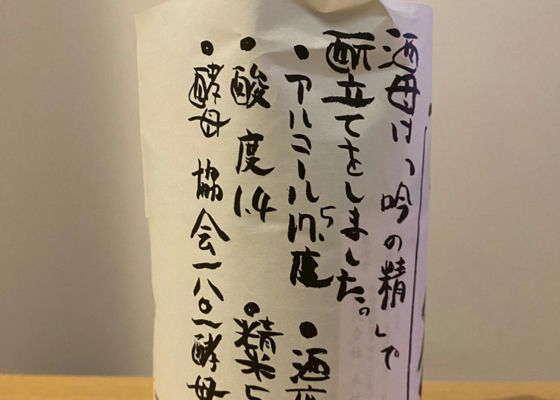 酒母は、「吟の精」で
酛立てをしました。
・アルコール17.5度
・酒度
・酸度1.4
・精米5
・酵母 協会一八〇一酵母